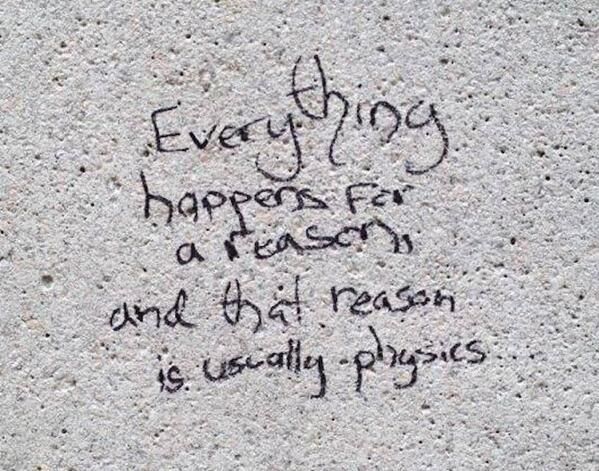 Everything
happens for
a reason,
and that reason
is usually physics...